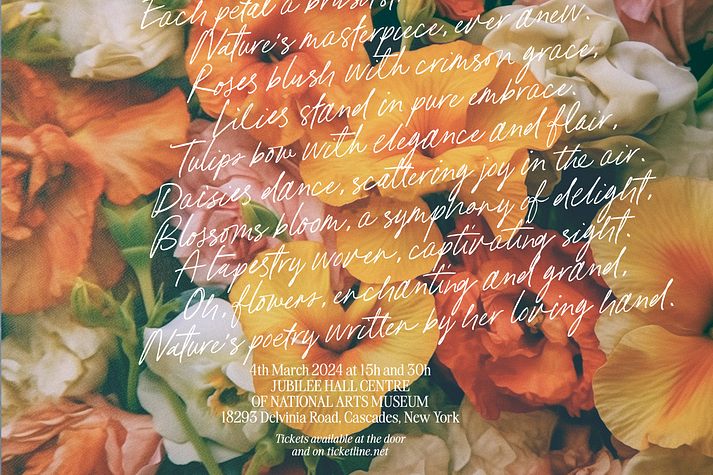 Each petal a brushstr
Nature's masterpiece, ever anew.
Roses blush with crimson grace,
Lilies stand in pure embrace.
Tulips bow with elegance and flair,
Daisies dance, scattering joy in the air.
Blossoms bloom, a symphony of delight,
A tapestry woven, captivating sight.
Oh, flowers, enchanting and grand,
Nature's poetry written by her loving hand.
4th March 2024 at 15h and 30h
JUBILEE HALL CENTRE
OF NATIONAL ARTS MUSEUM
18293 Delvinia Road, Cascades, New York
Tickets available at the door
and on ticketline.net